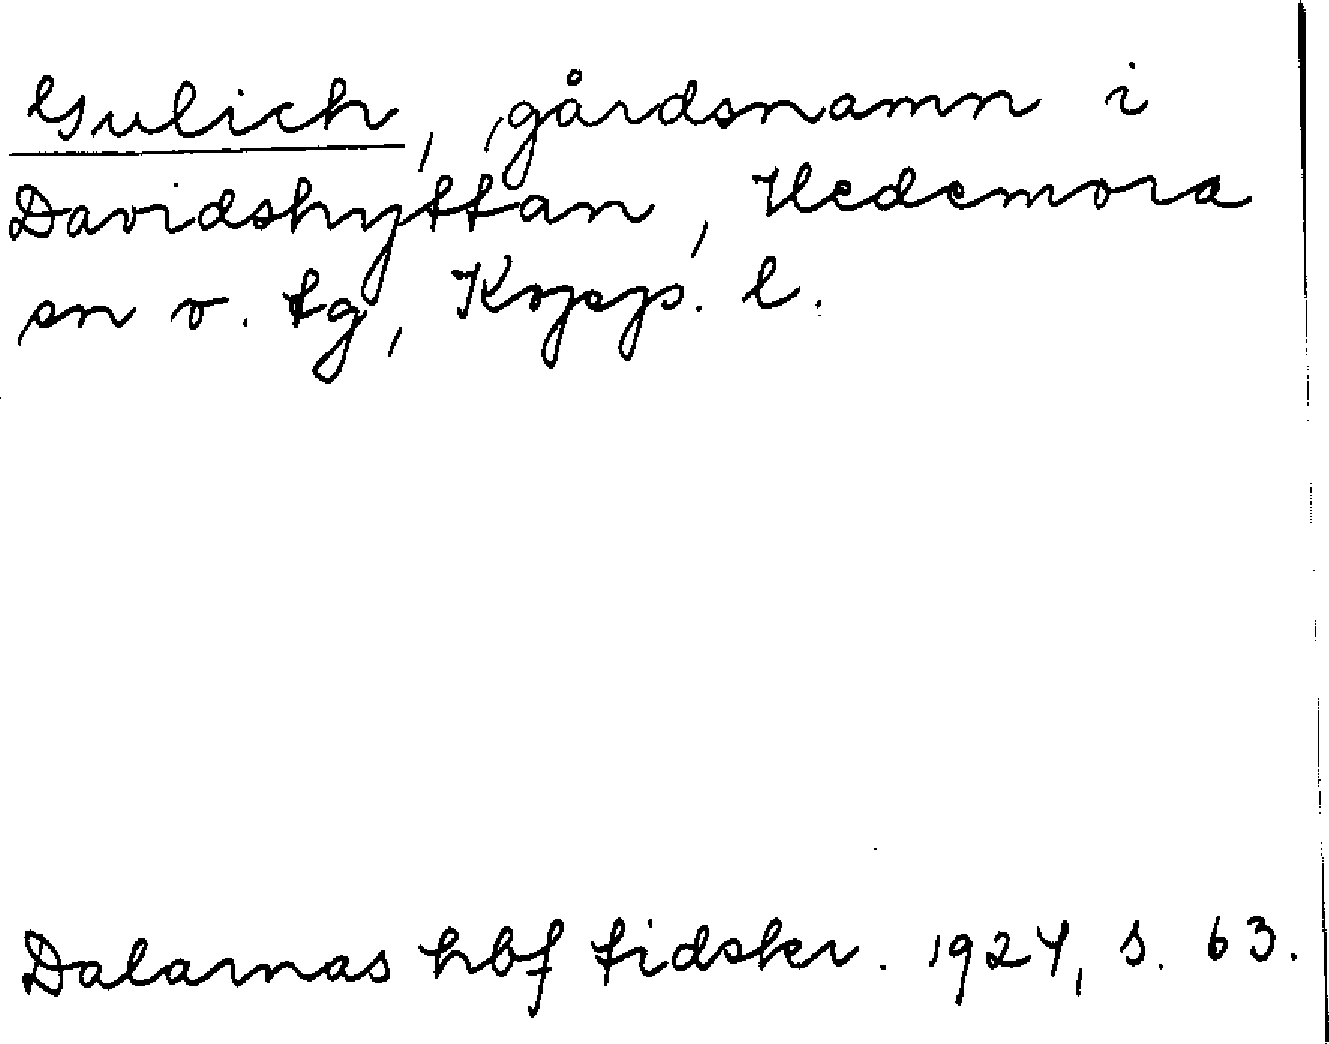 Gulich, gårdsnamn i
Davidshyttan, Hedemora
sn o. tg, Kopp. l.
Dalarnas hbf tidskr. 1924, s. 63.